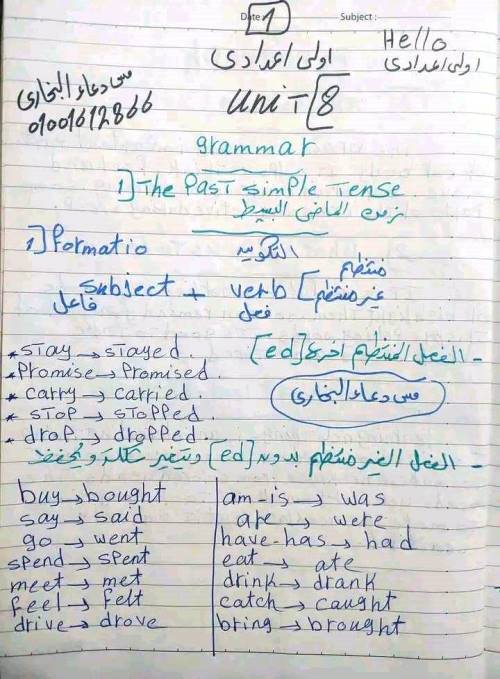 Date: 1 Subject:
Hello
اولى اعدادى
اولى اعدادى
مس دعاء البخارى
01001612866
UniT 8
grammar
1] The Past simple Tense
زمن الماضى البسيط
1] formatio التكوين
subject + verb [ منتظم
فاعل فعل غير منتظم
- الفعل المنتظم اخرها [ed]
* STay → STayed.
* Promise → Promised.
* carry → carried.
* STOP → STOPPed.
* drop → dropped.
مس دعاء البخارى
- الفعل الغير منتظم بدون [ed] ويتغير شكله ويحفظ
buy → bought
say → said
go → went
spend → spent
meet → met
feel → felt
drive → drove
am - is → was
are → were
have - has → had
eat → ate
drink → drank
catch → caught
bring → brought